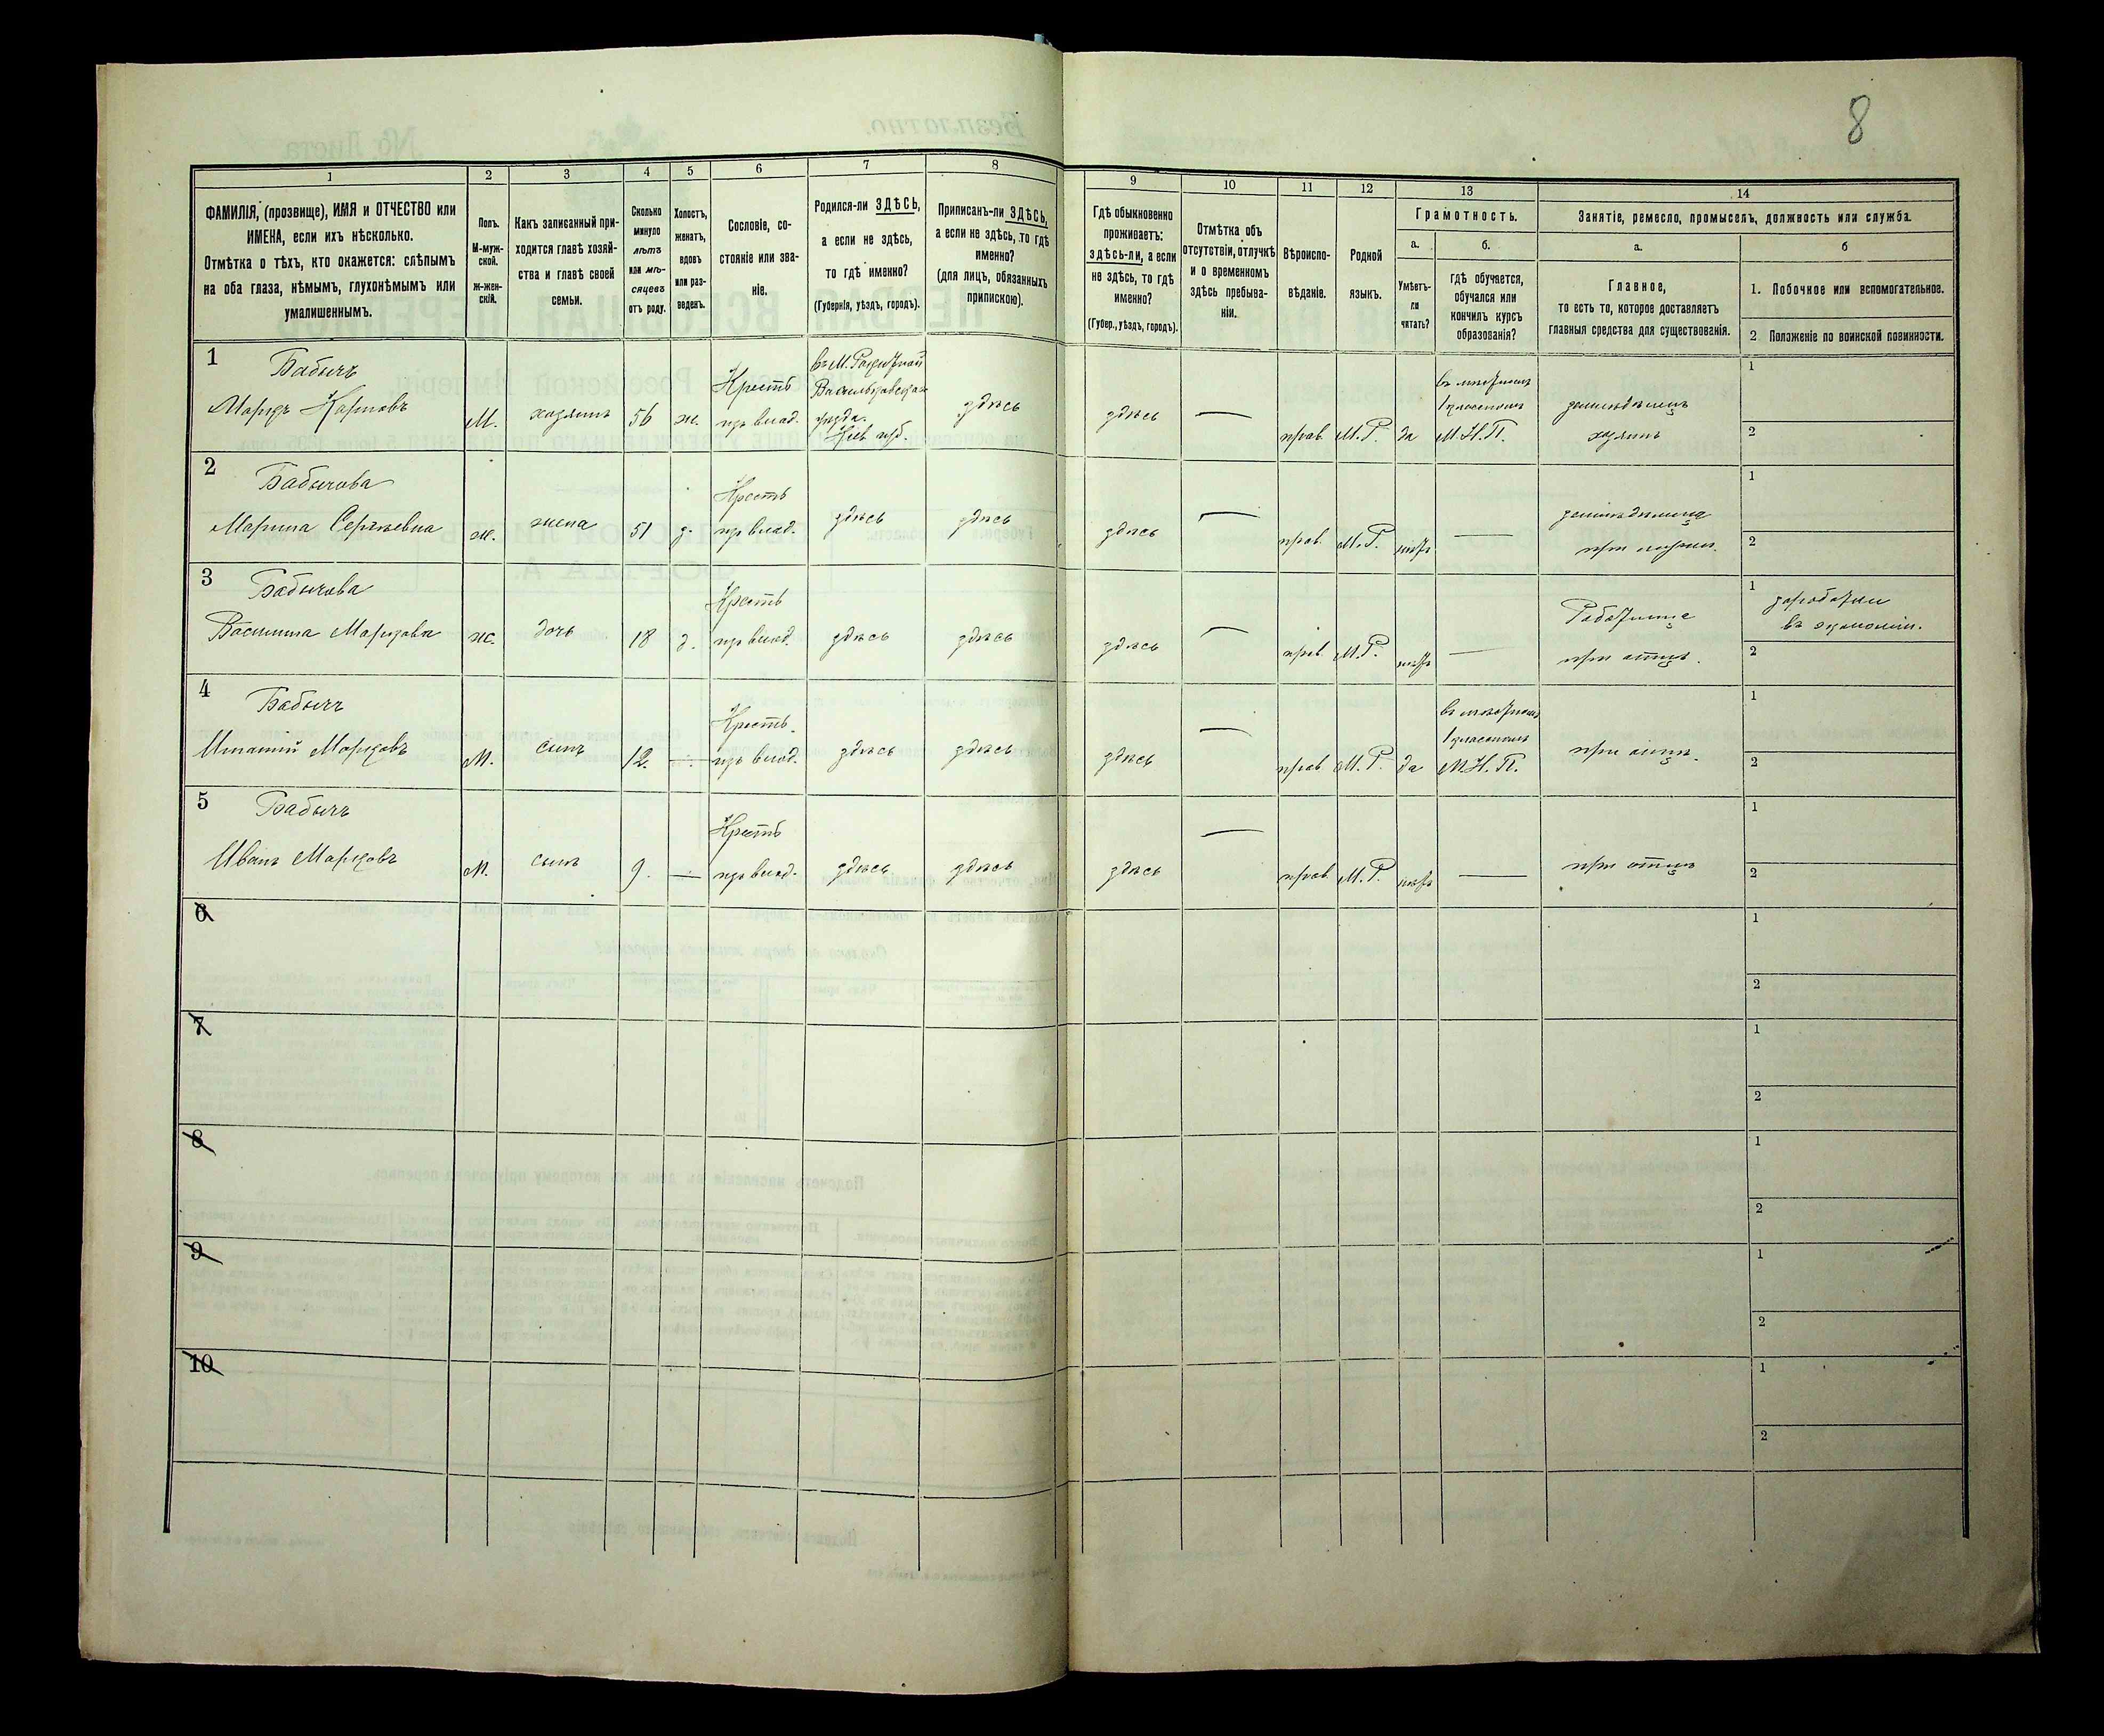 8
1
2
3
4
5
6
7
8
9
10
11
12
13
14
ФАМИЛІЯ, (прозвище), ИМЯ и ОТЧЕСТВО или
ИМЕНА, если ихъ нѣсколько.
Отмѣтка о тѣхъ, кто окажется: слѣпымъ
на оба глаза, нѣмымъ, глухонѣмымъ или
умалишеннымъ.
Полъ.
М-муж-
ской.
ж-жен-
скій.
Какъ записанный при-
ходится главѣ хозяй-
ства и главѣ своей
семьи.
Сколько
минуло
лѣтъ
или мѣ-
сяцевъ
отъ роду.
Холостъ,
женатъ,
вдовъ
или раз-
веденъ.
Сословіе, со-
стояніе или зва-
ніе.
Родился-ли ЗДѢСЬ,
а если не здѣсь,
то гдѣ именно?
(Губернія, уѣздъ, городъ).
Приписанъ-ли ЗДѢСЬ,
а если не здѣсь, то гдѣ
именно?
(для лицъ, обязанныхъ
припискою).
Гдѣ обыкновенно
проживаетъ:
здѣсь-ли, а если
не здѣсь, то гдѣ
именно?
(Губер., уѣздъ, городъ).
Отмѣтка объ
отсутствіи, отлучкѣ
и о временномъ
здѣсь пребыва-
ніи.
Вѣроиспо-
вѣданіе.
Родной
языкъ.
Грамотность.
а.
Умѣетъ-
ли
читать?
б.
гдѣ обучается,
обучался или
кончилъ курсъ
образованія?
Занятіе, ремесло, промыселъ, должность или служба.
а.
Главное,
то есть то, которое доставляетъ
главныя средства для существованія.
б
1. Побочное или вспомогательное.
2 Положеніе по воинской повинности.
1
Бабычъ
Карповъ
М.
хозяинъ
56
ж.
Крестъ
пр влад.
въ М.
уѣзда.
Кіев губ.
здѣсь
здѣсь
—
прав.
М. Р.
да
1 классномъ
М. Н. П.
земледѣлецъ
хозяинъ
1
2
2
Бабычова
Марина Сергѣевна
ж.
жена
51
з.
Крестъ
пр влад.
здѣсь
здѣсь
здѣсь
—
прав.
М. Р.
нѣтъ
—
1
2
3
Бабычова
ж.
дочь
18
д.
Крестъ
пр влад.
здѣсь
здѣсь
здѣсь
—
прав.
М. Р.
нѣтъ
—
Работница
при отцѣ.
1 заработки
въ экономіи.
2
4
Бабычъ
Игнатій
М.
сынъ
12.
—
Крестъ.
пр влад.
здѣсь
здѣсь
здѣсь
—
прав.
М. Р.
да
1 классномъ
М. Н. П.
при отцѣ.
1
2
5
Бабычъ
Иванъ
М.
сынъ
9.
—
Крестъ
пр влад.
здѣсь
здѣсь
здѣсь
—
прав.
М. Р.
нѣтъ
—
при отцѣ
1
2
6
1
2
7
1
2
8
1
2
9
1
2
10
1
2